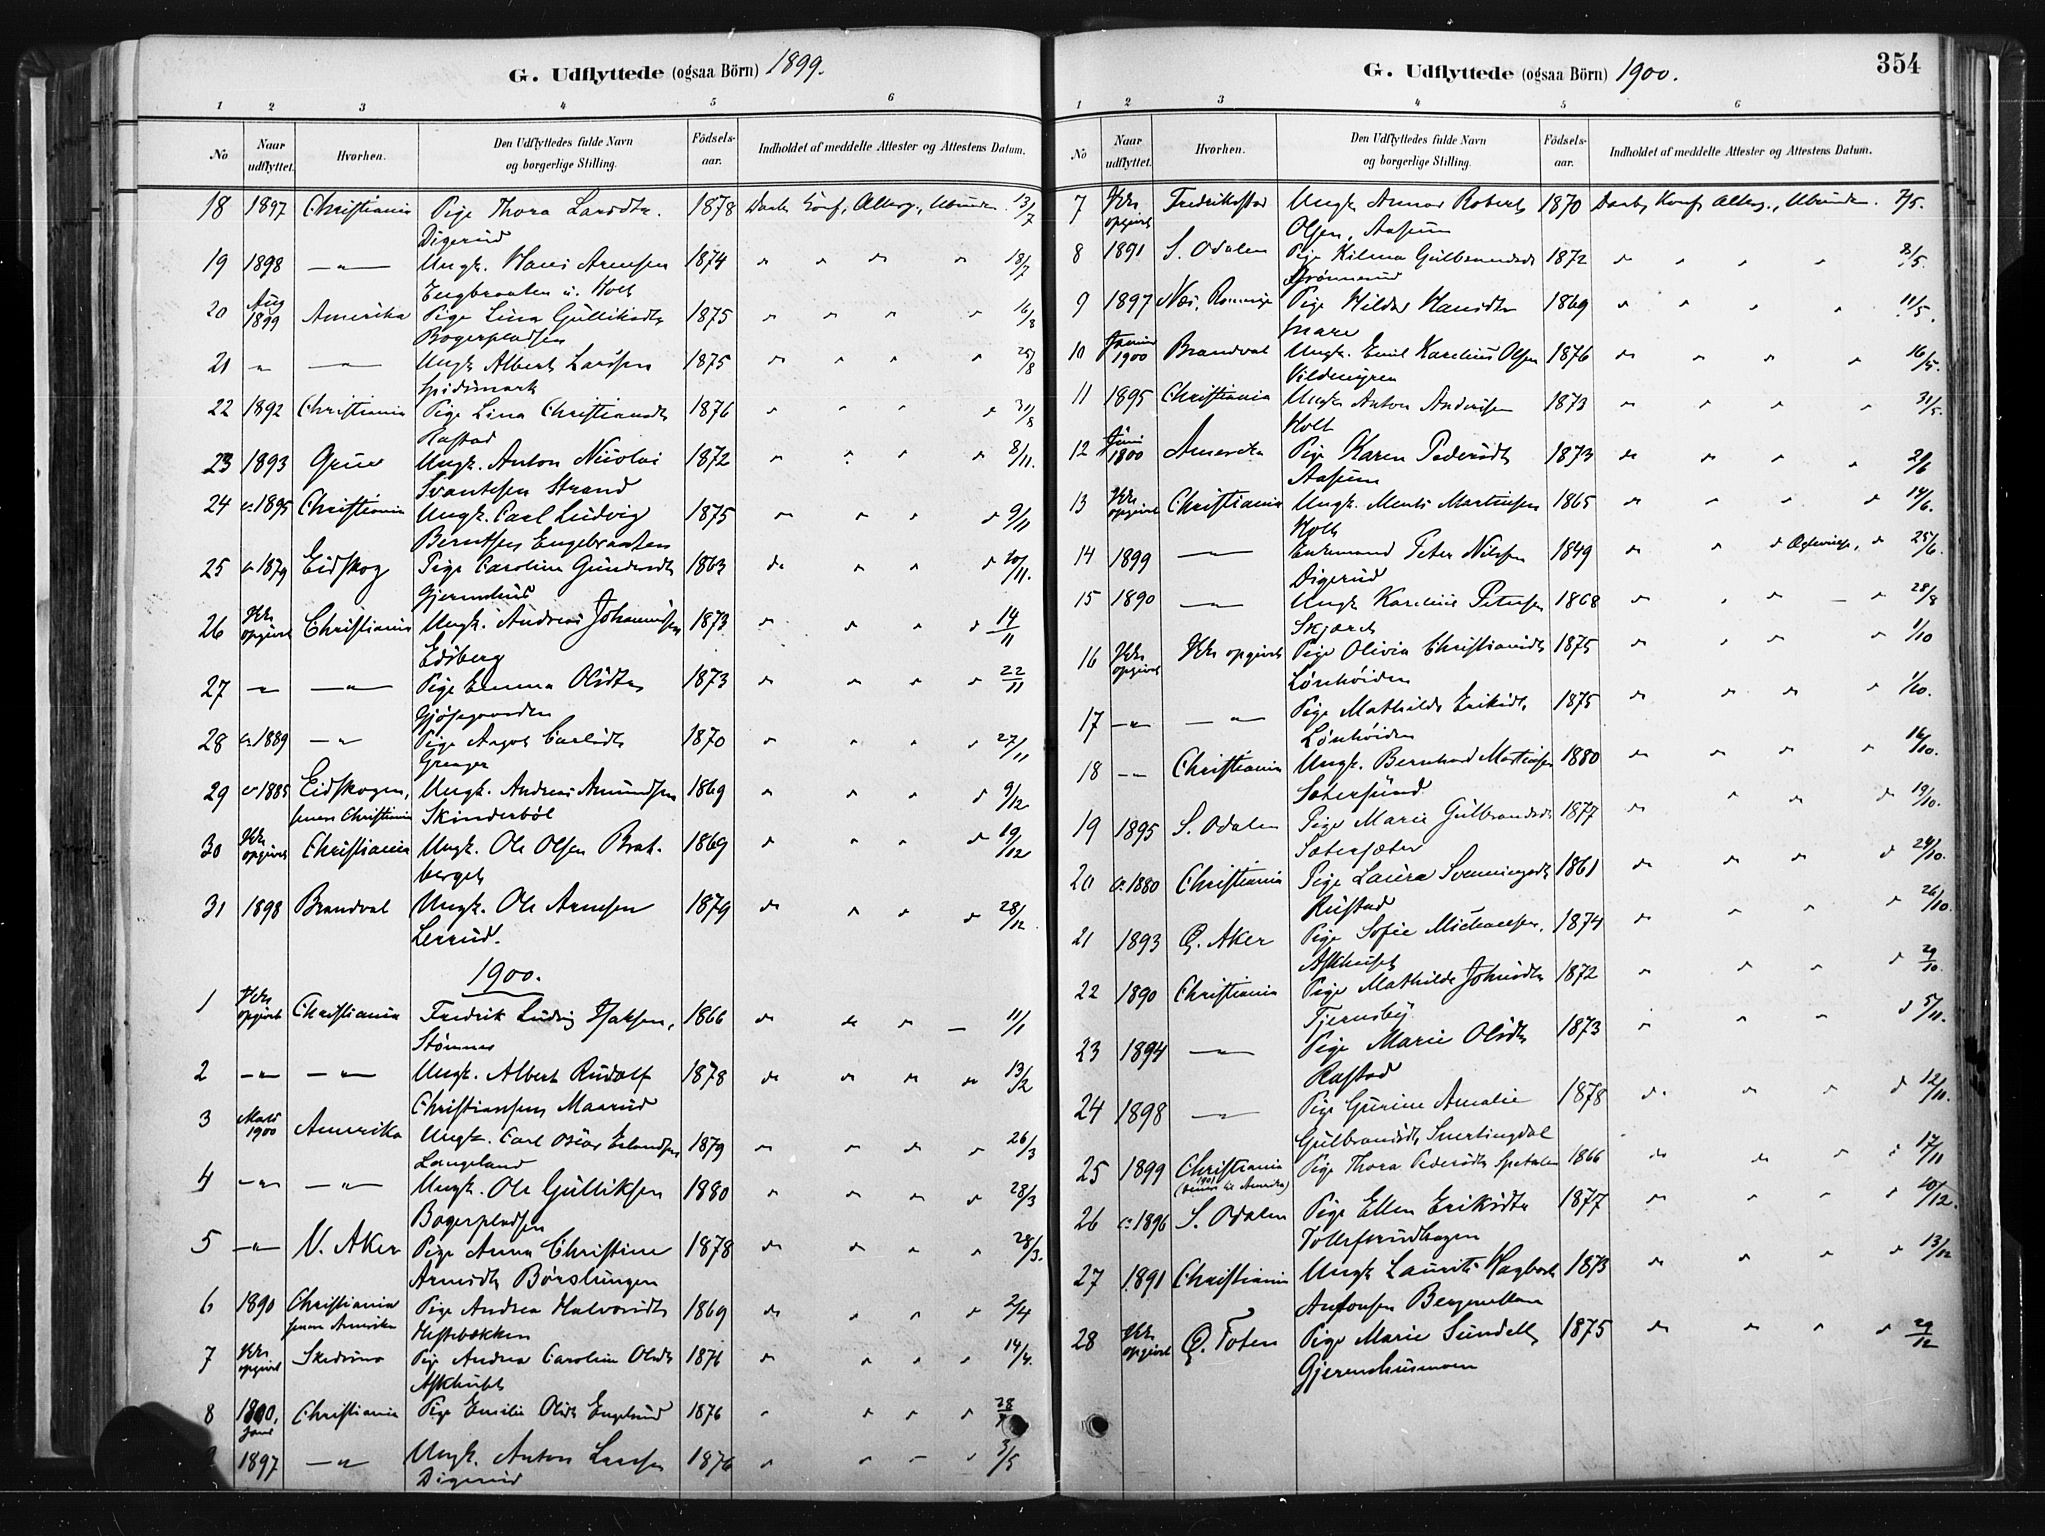 G. Udflyttede (ogsaa Börn) 1899.
1 2 3 4 5 6
No Naar udflyttet. Hvorhen. Den Udflyttedes fulde Navn og borgerlige Stilling. Födsels-aar. Indholdet af meddelte Attester og Attestens Datum.
18 1897 Christiania Pige Thora Larsdtr. 1878 Daab, Konf., 13/7
Digerud
19 1898 —"— Ungk. Hans Arnesen 1874 " " " " 18/7
Engbraaten u. Holt
20 Aug 1899 Amerika Pige Lina Gulliksdtr 1875 " " " " 16/8
Bogerpladsen
21 " —"— Ungk. Albert Larssen 1875 " " " " 25/8
22 1892 Christiania Pige Lina Christiansdtr 1876 " " " " 31/8
Rastad
23 1893 Grue Ungk. Anton Nicolai 1872 " " " " 8/11.
Svantesen Strand
24 ca 1895 Christiania Ungk. Carl Ludvig 1875 " " " " 9/11
Berntsen Engebraaten
25 ca 1879 Eidskog Pige Caroline Gundersdtr 1863 " " " " 20/11.
26 Ikke opgivet Christiania Ungk. Andreas Johannessen 1873 " " " " 14/11
Edsberg
27 " —"— Pige Emma Olsdtr 1873 " " " " 22/11
28 ca 1889 —"— Pige Carlsdtr 1870 " " " " 27/11
29 ca 1885 Eidskogen, Ungk. Andreas Amundsen 1869 " " " " 9/12
senere Christiania Skinderböl
30 Ikke opgivet Christiania Ungk. Ole Olsen Brat- 1869 " " " " 19/12
berget
31 1898 Brandval Ungk. Ole Arnesen 1879 " " " " 28/12.
Lerrud.
1900.
1 Ikke opgivet Christiania Fredrik Ludvig Isaksen, 1866 " " " — 11/1
Stömnes
2 —"— —"— Ungk. Albert Rudolf 1878 " " " " 13/2
Christiansen Maarud
3 1900 Amerika Ungk. Carl Oscar Erlandsen 1879 " " " " 26/3
Langeland
4 —"— —"— Ungk. Ole Gulliksen 1880 " " " " 28/3
Bogerpladsen
5 —"— V. Aker Pige Anna Christine 1878 " " " " 28/3.
Arnesdtr Börslungen
6 1890 Christiania Pige Andrea Halvorsdtr 1869 " " " " 2/4
senere Amerika Hestebækken
7 Ikke opgivet Skedsmo Pige Andrea Caroline Olsdtr 1876 " " " " 14/4.
8 1900. Christiania Pige Emilie Olsdtr Englund 1876 " " " " 28
1897 —"— Ungk. Anton Larssen 1876 " " — " 3/5
Digerud
G. Udflyttede (ogsaa Börn) 1900. 354
1 2 3 4 5 6
No Naar udflyttet. Hvorhen. Den Udflyttedes fulde Navn og borgerlige Stilling. Födsels-aar. Indholdet af meddelte Attester og Attestens Datum.
7 Ikke opgivet Fredrikstad Ungk. Robert 1870 Daab, Konf. 7/5.
Olsen, Aasum
8 1891 S. Odalen Pige Gulbrandsdtr 1872 " " " " 8/5.
9 1897 Næs, Romerige Pige Hilda Hansdtr 1869 " " " " 11/5.
10 1900 Brandval Ungk. Emil Karelius Olsen 1876 " " " " 16/5.
Vildmyren
11 1895 Christiania Ungk. Anton Andersen 1873 " " " " 31/5.
Holt
12 Juni 1800 Amerika Pige Karen Pedersdtr 1873 " " " "
Aasum
13 Ikke opgivet Christiania Ungk. Martinsen 1865 " " " " 14/6.
Holt
14 1899 —"— Enkemand Peter Nilsen 1849 " " " " 25/6.
Digerud
15 1890 —"— Ungk. Karelius Petersen 1868 " " " — " 28/8
Skjæret
16 Ikke opgivet Ikke opgivet Pige Olivia Christiansdtr 1875 " " " " 1/10
Lönhöiden
17 —"— —"— Pige Mathilde Eriksdtr. 1875 " " " " 1/10.
Lönhöiden
18 —"— Christiania Ungk. Bernhard Martinsen 1880 " " " " 16/10.
19 1895 S. Odalen Pige Marie Gulbrandsdtr 1877 " " " " 19/10.
20 ca 1880 Christiania Pige Laura Svenningsdtr 1861 " " " " 24/10.
Rustad
21 1893 Ö. Aker Pige Sofie Michaelsen. 1874 " " " " 26/10.
22 1890 Christiania Pige Mathilde Johnsdtr 1872 " " " " 29/10.
Tjernsby.
23 1894 —"— Pige Marie Olsdtr 1873 " " " " 5/11.
Rastad
24 1898 —"— Pige Gurine Amalie 1878 " " " " 12/11.
Gulbrandsdtr Snertingdal
25 1899 Christiania Pige Thora Pedersdtr Spetalen 1866 " " " " 17/11
(senere til Amerika)
26 ca 1896 S. Odalen Pige Ellen Eriksdtr 1877 " " " " 10/12.
27 1891 Christiania Ungk. Laurits Hagbart 1873 " " " " 13/12
Antonsen
28 Ikke opgivet Ö. Toten Pige Marie Sundell 1875 " " " " 29/12
Gjermshusmoen